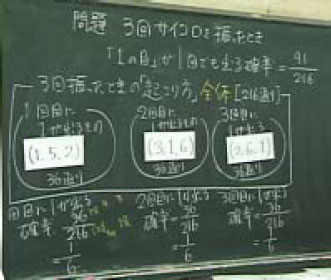 問題 3回サイコロを振ったとき
「1の目」が1回でも出る確率=91/216
3回振ったときの「起こり方」全体[216通り]
1回目に 2回目に 3回目に
1が出るもの 1が出るもの 1が出る
(1,5,2) (3,1,6) (2,6,1)
36通り 36通り 36通り
1回目に1が出る 2回目に1が出る 3回目に1が出る
確率=36/216 確率=36/216 確率=36/216
=1/6 =1/6 =1/6